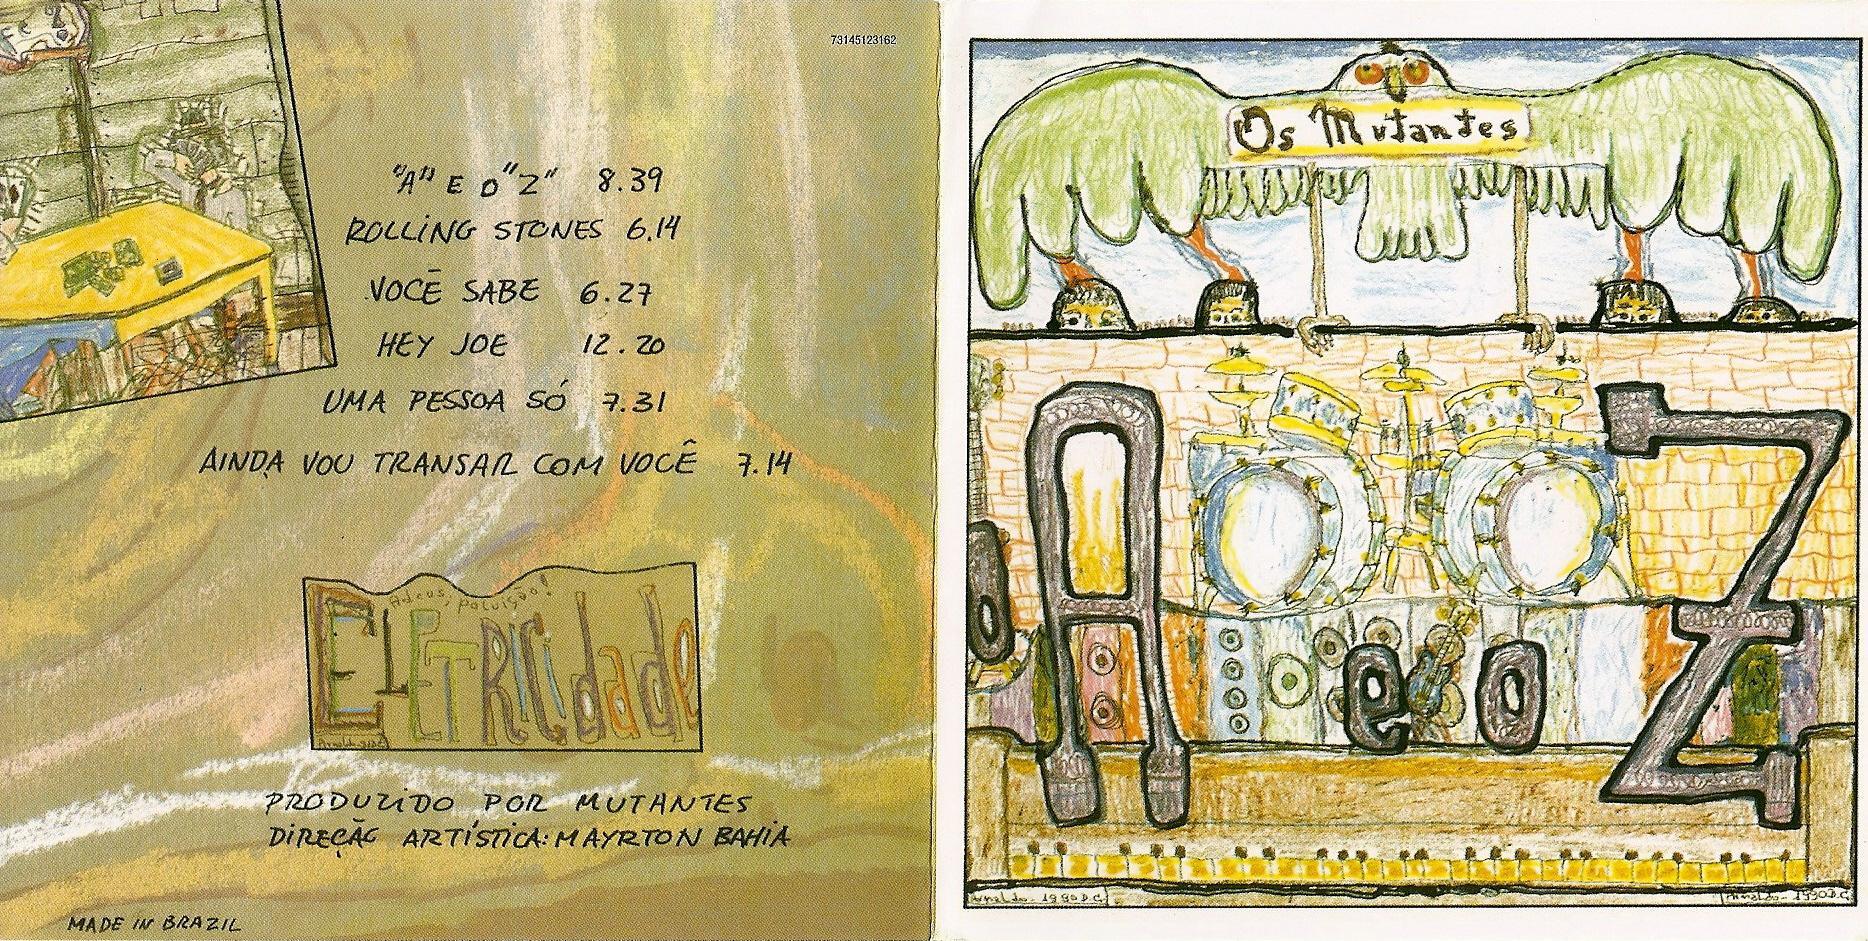 73145123162
"A" E O "Z" 8.39
ROLLING STONES 6.14
VOCÊ SABE 6.27
HEY JOE 12.20
UMA PESSOA SÓ 7.31
AINDA VOU TRANSAR COM VOCÊ 7.14
Adeus, poluição!
ELETRICidade
PRODUZIDO POR MUTANTES
DIREÇÃO ARTÍSTICA: MAYRTON BAHIA
MADE IN BRAZIL
Os Mutantes
A e o Z
Arnaldo - 1990 D.C. Arnaldo - 1990 D.C.